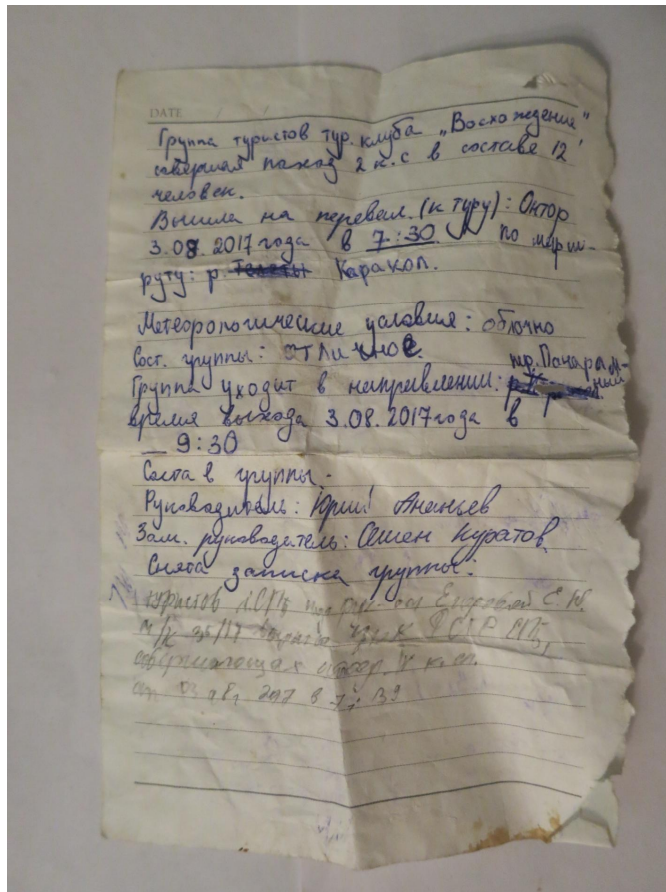 DATE / /
Группа туристов тур. клуба „Восхождение"
совершая поход 2 к.с в составе 12
человек.
Вышла на перевал (к туру): Онтор
3.08.2017 года в 7:30 по марш-
руту: р. Каракол.
Метеорологические условия: облочно
Сост. группы: отличное.
Группа уходит в направлении:
время выхода 3.08.2017 года в
— 9:30
Состав группы:
Руководитель: Юрий Ананьев
Зам. руководитель: Семен Куратов
Снята записка группы:
туристов под рук-вом Егоровой Е. Ю.
м/к
совершающая
от 03 2017 в